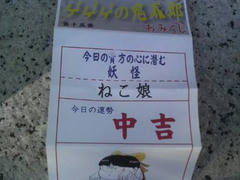 ゲゲゲの鬼太郎
おみくじ
今日の貴方の心に潜む
妖怪
ねこ娘
今日の運勢
中吉